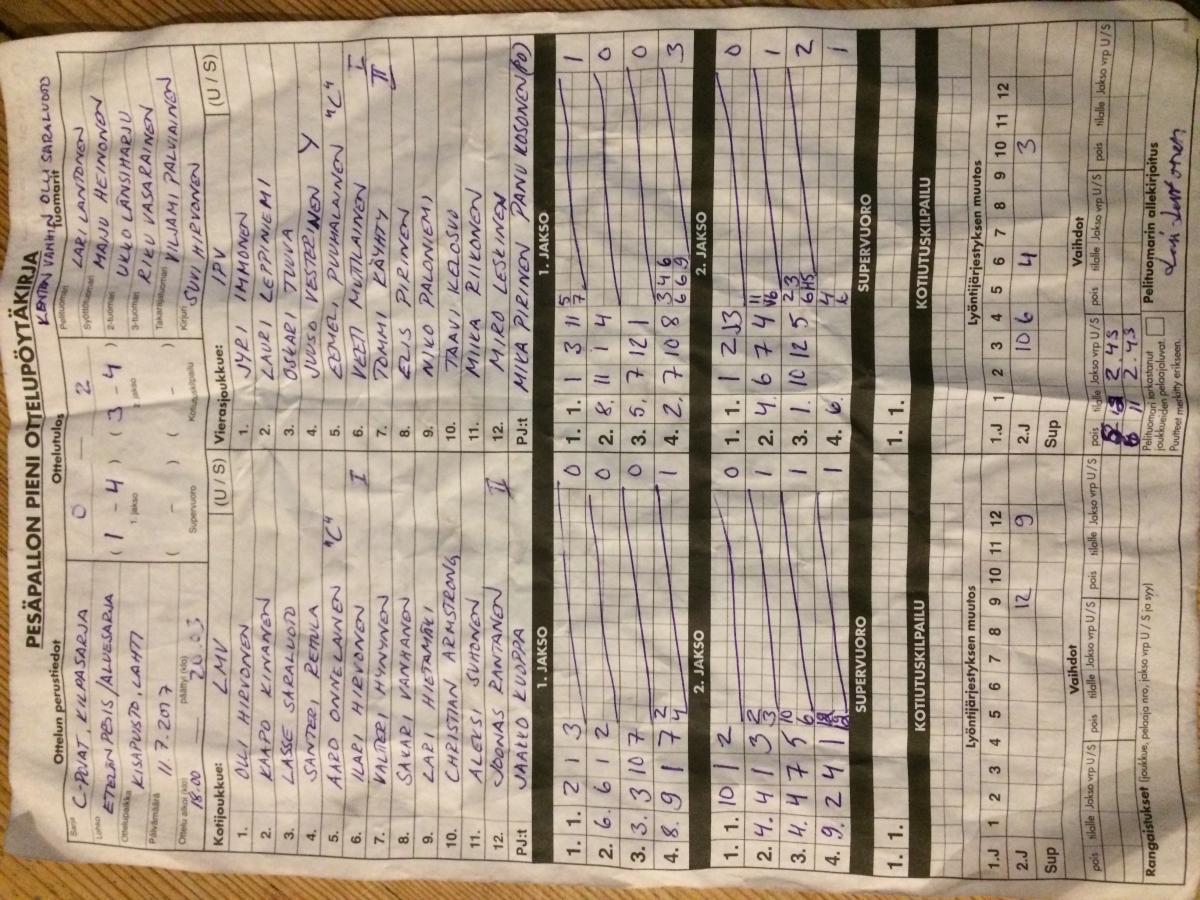 PESÄPALLON PIENI OTTELUPÖYTÄKIRJA
KENTÄN VANHIN OLLI SARALUOTO
Ottelun perustiedot
Ottelutulos
Tuomarit
Sarja C-POJAT, KILPASARJA
0 2
Pelituomari LARI LANTONEN
Lohko ETELÄN PESIS / ALUESARJA
( 1 - 4 ) ( 3 - 4 )
1. jakso 2. jakso
Syöttötuomari MAJU HEINONEN
Ottelupaikka KISAPUISTO, LAHTI
2-tuomari UKKO LÄNSIHARJU
Päivämäärä 11.7.2017
( - ) ( - )
Supervuoro Kotiutuskilpailu
3-tuomari RIKU VASARAINEN
Takarajatuomari VILJAMI PALVIAINEN
Ottelu alkoi (klo) 18.00 päättyi (klo) 20.03
Kirjuri SUVI HIRVONEN
Kotijoukkue: LMV (U / S)
Vierasjoukkue: IPV (U / S)
1. OLLI HIRVONEN
2. KAAPO KINNARINEN
3. LASSE SARALUOTO
4. SANTERI REMULA
5. AARO ONNELAINEN "C"
6. ILARI HIRVONEN I
7. VALTTERI HYNYNEN
8. SAKARI VANHANEN
9. LARI HIETAMÄKI
10. CHRISTIAN ARMSTRONG
11. ALEKSI SUHONEN
12. JOONAS RANTANEN II
PJ:t JAAKKO KUOPPA
1. JYRI IMMONEN
2. LAURI LEPPINIEMI
3. OSKARI TUUVA
4. JUUSO VESTERINEN Y
5. EEMEL PUUHALAINEN "C"
6. VEETI MUTILAINEN I
7. TOMMI KÄYHTY II
8. ELIS PIRINEN
9. NIKO PALONIEMI
10. TAAVI KELOSUO
11. MIKA RIIKONEN
12. MIRO LESKINEN
PJ:t MIKA PIRINEN PANU KOSONEN (PO)
1. JAKSO
1. 1. 2 1 3 0
2. 6. 6 1 2 0
3. 3. 3 10 7 0
4. 8. 9 1 7 2 4 1
1. JAKSO
1. 1. 1 3 11 5 7 1
2. 8. 11 1 4 0
3. 5. 7 12 1 0
4. 2. 7 10 8 3 4 6 6 6 9 3
2. JAKSO
1. 1. 10 1 2 0
2. 4. 4 1 3 2 3 1
3. 4. 4 7 5 10 6 1
4. 9. 2 4 1 1
2. JAKSO
1. 1. 1 2 0
2. 4. 6 7 4 11 1
3. 1. 10 12 5 2 3 2
4. 6. 4 1
SUPERVUORO
1. 1.
SUPERVUORO
1. 1.
KOTIUTUSKILPAILU
KOTIUTUSKILPAILU
Lyöntijärjestyksen muutos
1.J 1 2 3 4 5 6 7 8 9 10 11 12
2.J 12 9
Sup
Lyöntijärjestyksen muutos
1.J 1 2 3 4 5 6 7 8 9 10 11 12
2.J 10 6 4 3
Sup
Vaihdot
pois tilalle Jakso vrp U / S pois tilalle Jakso vrp U / S pois tilalle Jakso vrp U / S
Vaihdot
pois tilalle Jakso vrp U / S pois tilalle Jakso vrp U / S pois tilalle Jakso vrp U / S
8 12 2. 4S
6 11 2. 4S
Rangaistukset (joukkue, pelaaja nro, jakso vrp U / S ja syy)
Pelituomari tarkastanut
joukkueiden pelaajaluvat.
Puutteet merkitty erikseen.
Pelituomarin allekirjoitus